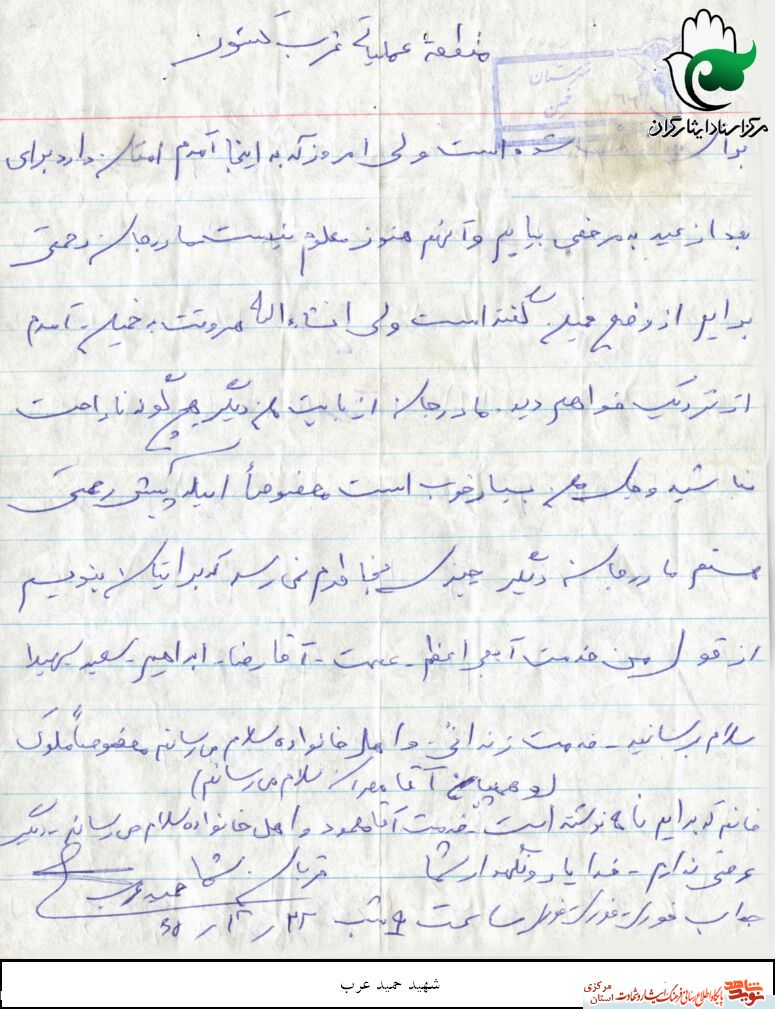 منطقه عملیاتی غرب کشور
مرکز اسناد ایثارگران
شده است ولی امروز که به اینجا آمدم امکان دارد برای
بعد از عید به مرخصی بیایم و آنهم هنوز معلوم نیست مادرجان رحمتی
برایم از وضع گفته است ولی انشاءالله هر وقت به خمین آمدم
از نزدیک خواهم دید. مادرجان از بابت من دیگر هیچ گونه ناراحت
نباشید و حال من بسیار خوب است مخصوصاً اینکه پیش رحمتی
هستم مادرجان دیگر چیزی بخاطرم نمی رسد که برایتان بنویسم
از قول من خدمت آبجی اعظم - عصمت - آقا رضا - ابراهیم - سعید -
سلام برسانید - خدمت زندائی و اهل خانواده سلام می رسانم مخصوصاً ملوک
(و همچنین آقا مهران سلام می رسانم)
خانم که برایم نامه نوشته است - خدمت آقا محمود و اهل خانواده سلام می رسانم - دیگر
عرضی ندارم - خدا یار و نگهدار شما
قربان شما
حمید عرب
جواب فوری فوری فوری ساعت ۹ شب ۲۲ / ۱۲ / ۶۵
شهید حمید عرب
نوید شاهد
پایگاه اطلاع رسانی فرهنگ ایثار و شهادت استان مرکزی